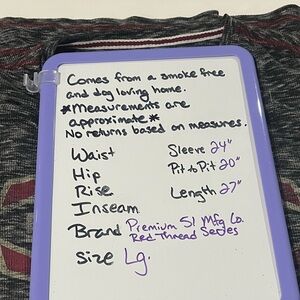 Comes from a smoke free
and dog loving home.
*Measurements are
approximate*
No returns based on measures.
Waist
Sleeve 24"
Hip
Pit to Pit 20"
Rise
Length 27"
Inseam
Brand Premium 51 Mfg Co.
Red Thread Series
Size Lg.